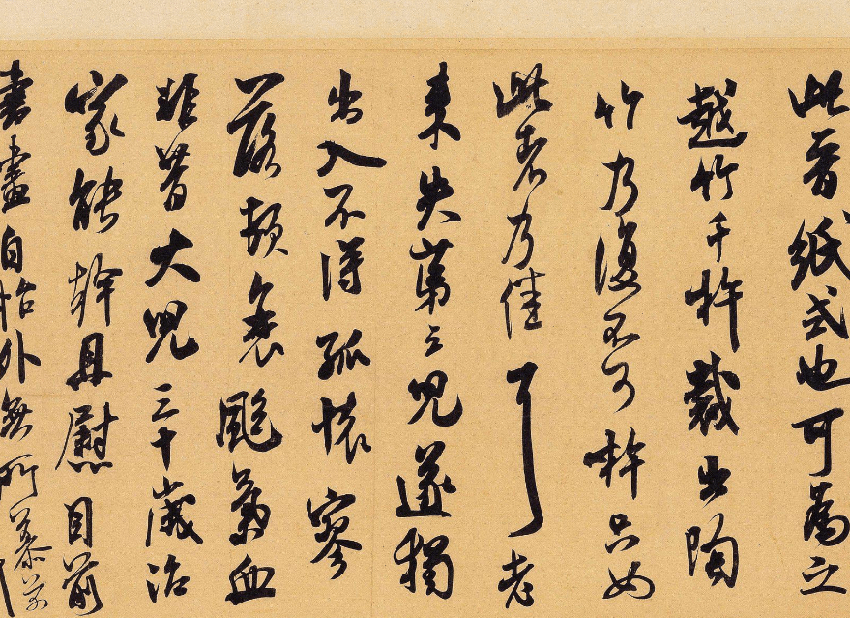 此晉紙式也可為之
越竹千杵裁出陶
竹乃復不可杵只如
此者乃佳耳老
來失第三兒遂獨
出入不得孤懷寥
落頓衰颯氣血
非昔大兒三十歲治
家能幹且慰目前
書畫自怡外無所慕